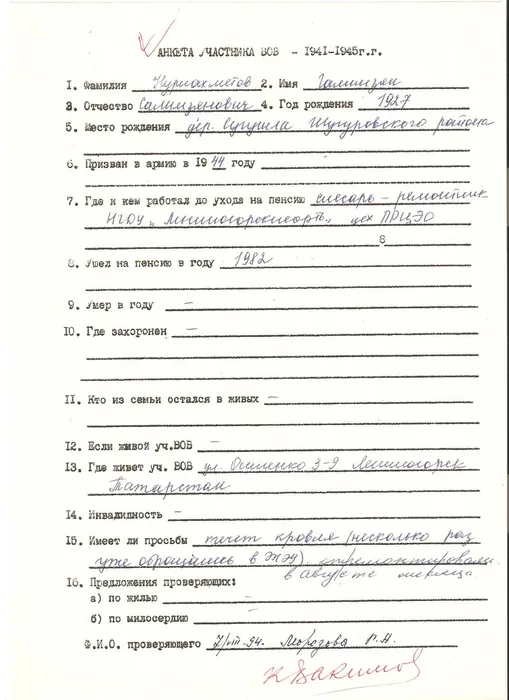 АНКЕТА УЧАСТНИКА ВОВ - 1941-1945г.г.
1. Фамилия Нурмахметов 2. Имя Галимзян
3. Отчество Салимзянович 4. Год рождения 1927
5. Место рождения дер. Шугуровского района
6. Призван в армию в 1944 году
7. Где и кем работал до ухода на пенсию слесарь-ремонтник
НГДУ "Лениногорскнефть" цех ПРЦЭО
8
8. Ушел на пенсию в году 1982
9. Умер в году —
10. Где захоронен —
11. Кто из семьи остался в живых —
12. Если живой уч.ВОВ —
13. Где живет уч. ВОВ ул. Осипенко 3-9 Лениногорск
Татарстан
14. Инвалидность —
15. Имеет ли просьбы течет кровля (несколько раз
уже обращались в ЖЭУ) отремонтировали
в августе месяце
16. Предложения проверяющих:
а) по жилью —
б) по милосердию
Ф.И.О. проверяющего 7/VIII-94. Морозова Р.Н.